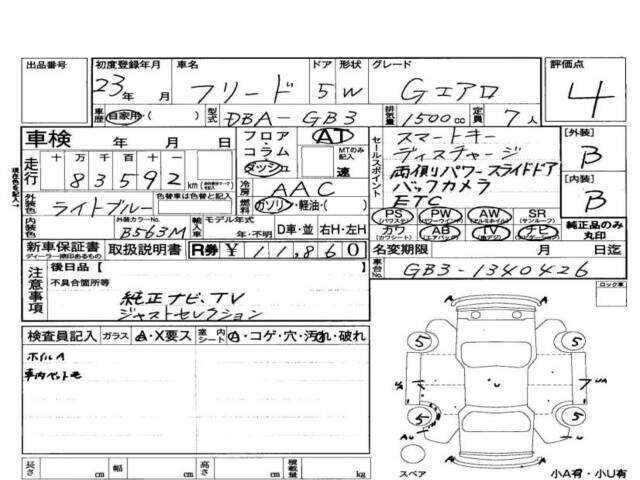 出品番号 初度登録年月 車名 ドア 形状 グレード 評価点
23年 月 フリード 5 W Gエアロ 4
車歴 自家用・( ) 型式 DBA-GB3 排気量 1500cc 定員 7人
車検 年 月 日 フロア AT セールスポイント スマートキー [外装]
コラム MTのみ記入 ディスチャージ B
走行 十万千百十一 83592 km ダッシュ 速 両側パワースライドドア [内装]
冷房 AAC バックカメラ B
現在色を記入 外装色 ライトブルー 色替車は色替と記入 燃料 ガソリン・軽油・( ) ETC
PS (パワステ) PW (パワーウインド) AW (アルミホイル) SR (サンルーフ) 純正品のみ丸印
内装色 外装カラーNo. B563M 輸入車 モデル年式 年・不明 D車・並 右H・左H カワ (カワシート) AB (エアバック) TV ナビ (ナビゲーション)
新車保証書 ディーラー捺印あるもの 取扱説明書 R券 ¥11,860 名変期限 月 日迄
注意事項 後日品【 】 車台No. GB3-1340426
不具合箇所等 ロック車
純正ナビ、TV
ジャストセレクション
検査員記入 ガラス A・X要ス 室内シート A・コゲ・穴・汚れ・破れ
ホイルA
5 5
U
5 5
スペア
長さ cm 幅 cm 高さ cm 積載量 kg 小A有・小U有